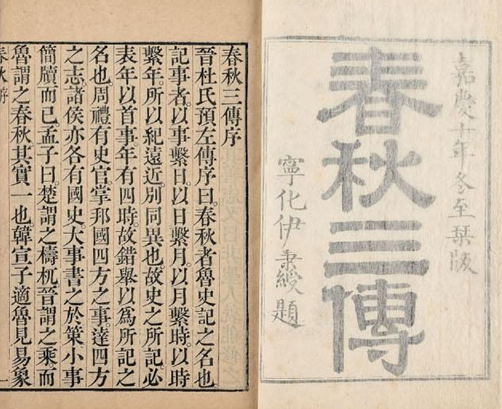 嘉慶十年冬至栞版
春秋三傳
寧化伊秉綬題
春秋三傳序
晉杜氏預左傳序曰春秋者魯史記之名也
記事者以事繫日以日繫月以月繫時以時
繫年所以紀遠近別同異也故史之所記必
表年以首事年有四時故錯舉以爲所記之
名也周禮有史官掌邦國四方之事達四方
之志諸侯亦各有國史大事書之於策小事
簡牘而已孟子曰楚謂之檮杌晉謂之乘而
魯謂之春秋其實一也韓宣子適魯見易象
春秋序
一